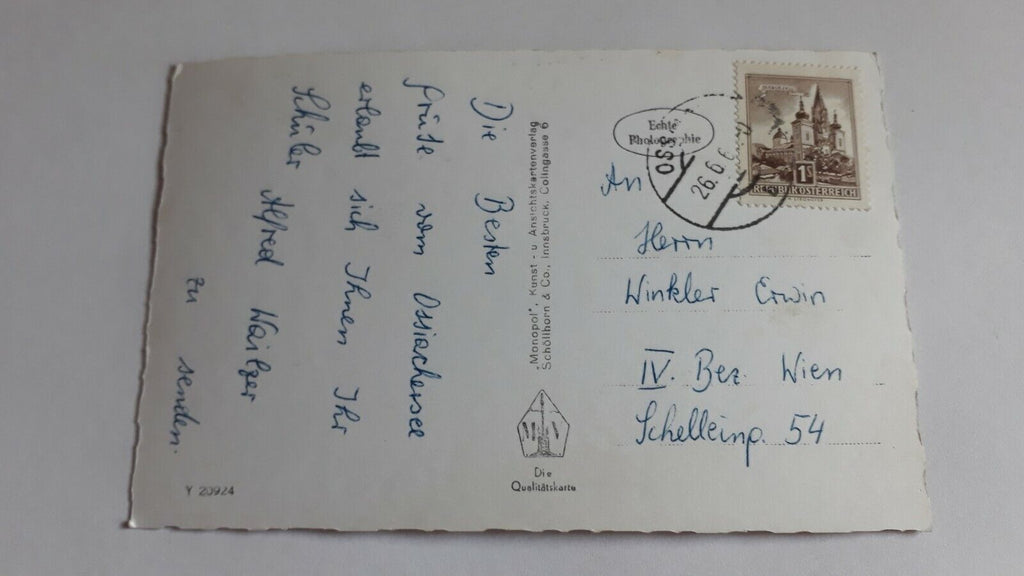 Die Besten
Grüße vom Ossiachersee
erlaubt sich Ihnen Ihr
Schüler Alfred Waitzer
zu senden.
Y 20924
„Monopol", Kunst- u Ansichtskartenverlag
Schöllhorn & Co., Innsbruck, Colingasse 6
Die
Qualitätskarte
Echte
Photographie
26.6.6
1
REPUBLIK ÖSTERREICH
An
Herrn
Winkler Erwin
IV. Bez. Wien
Schelleing. 54